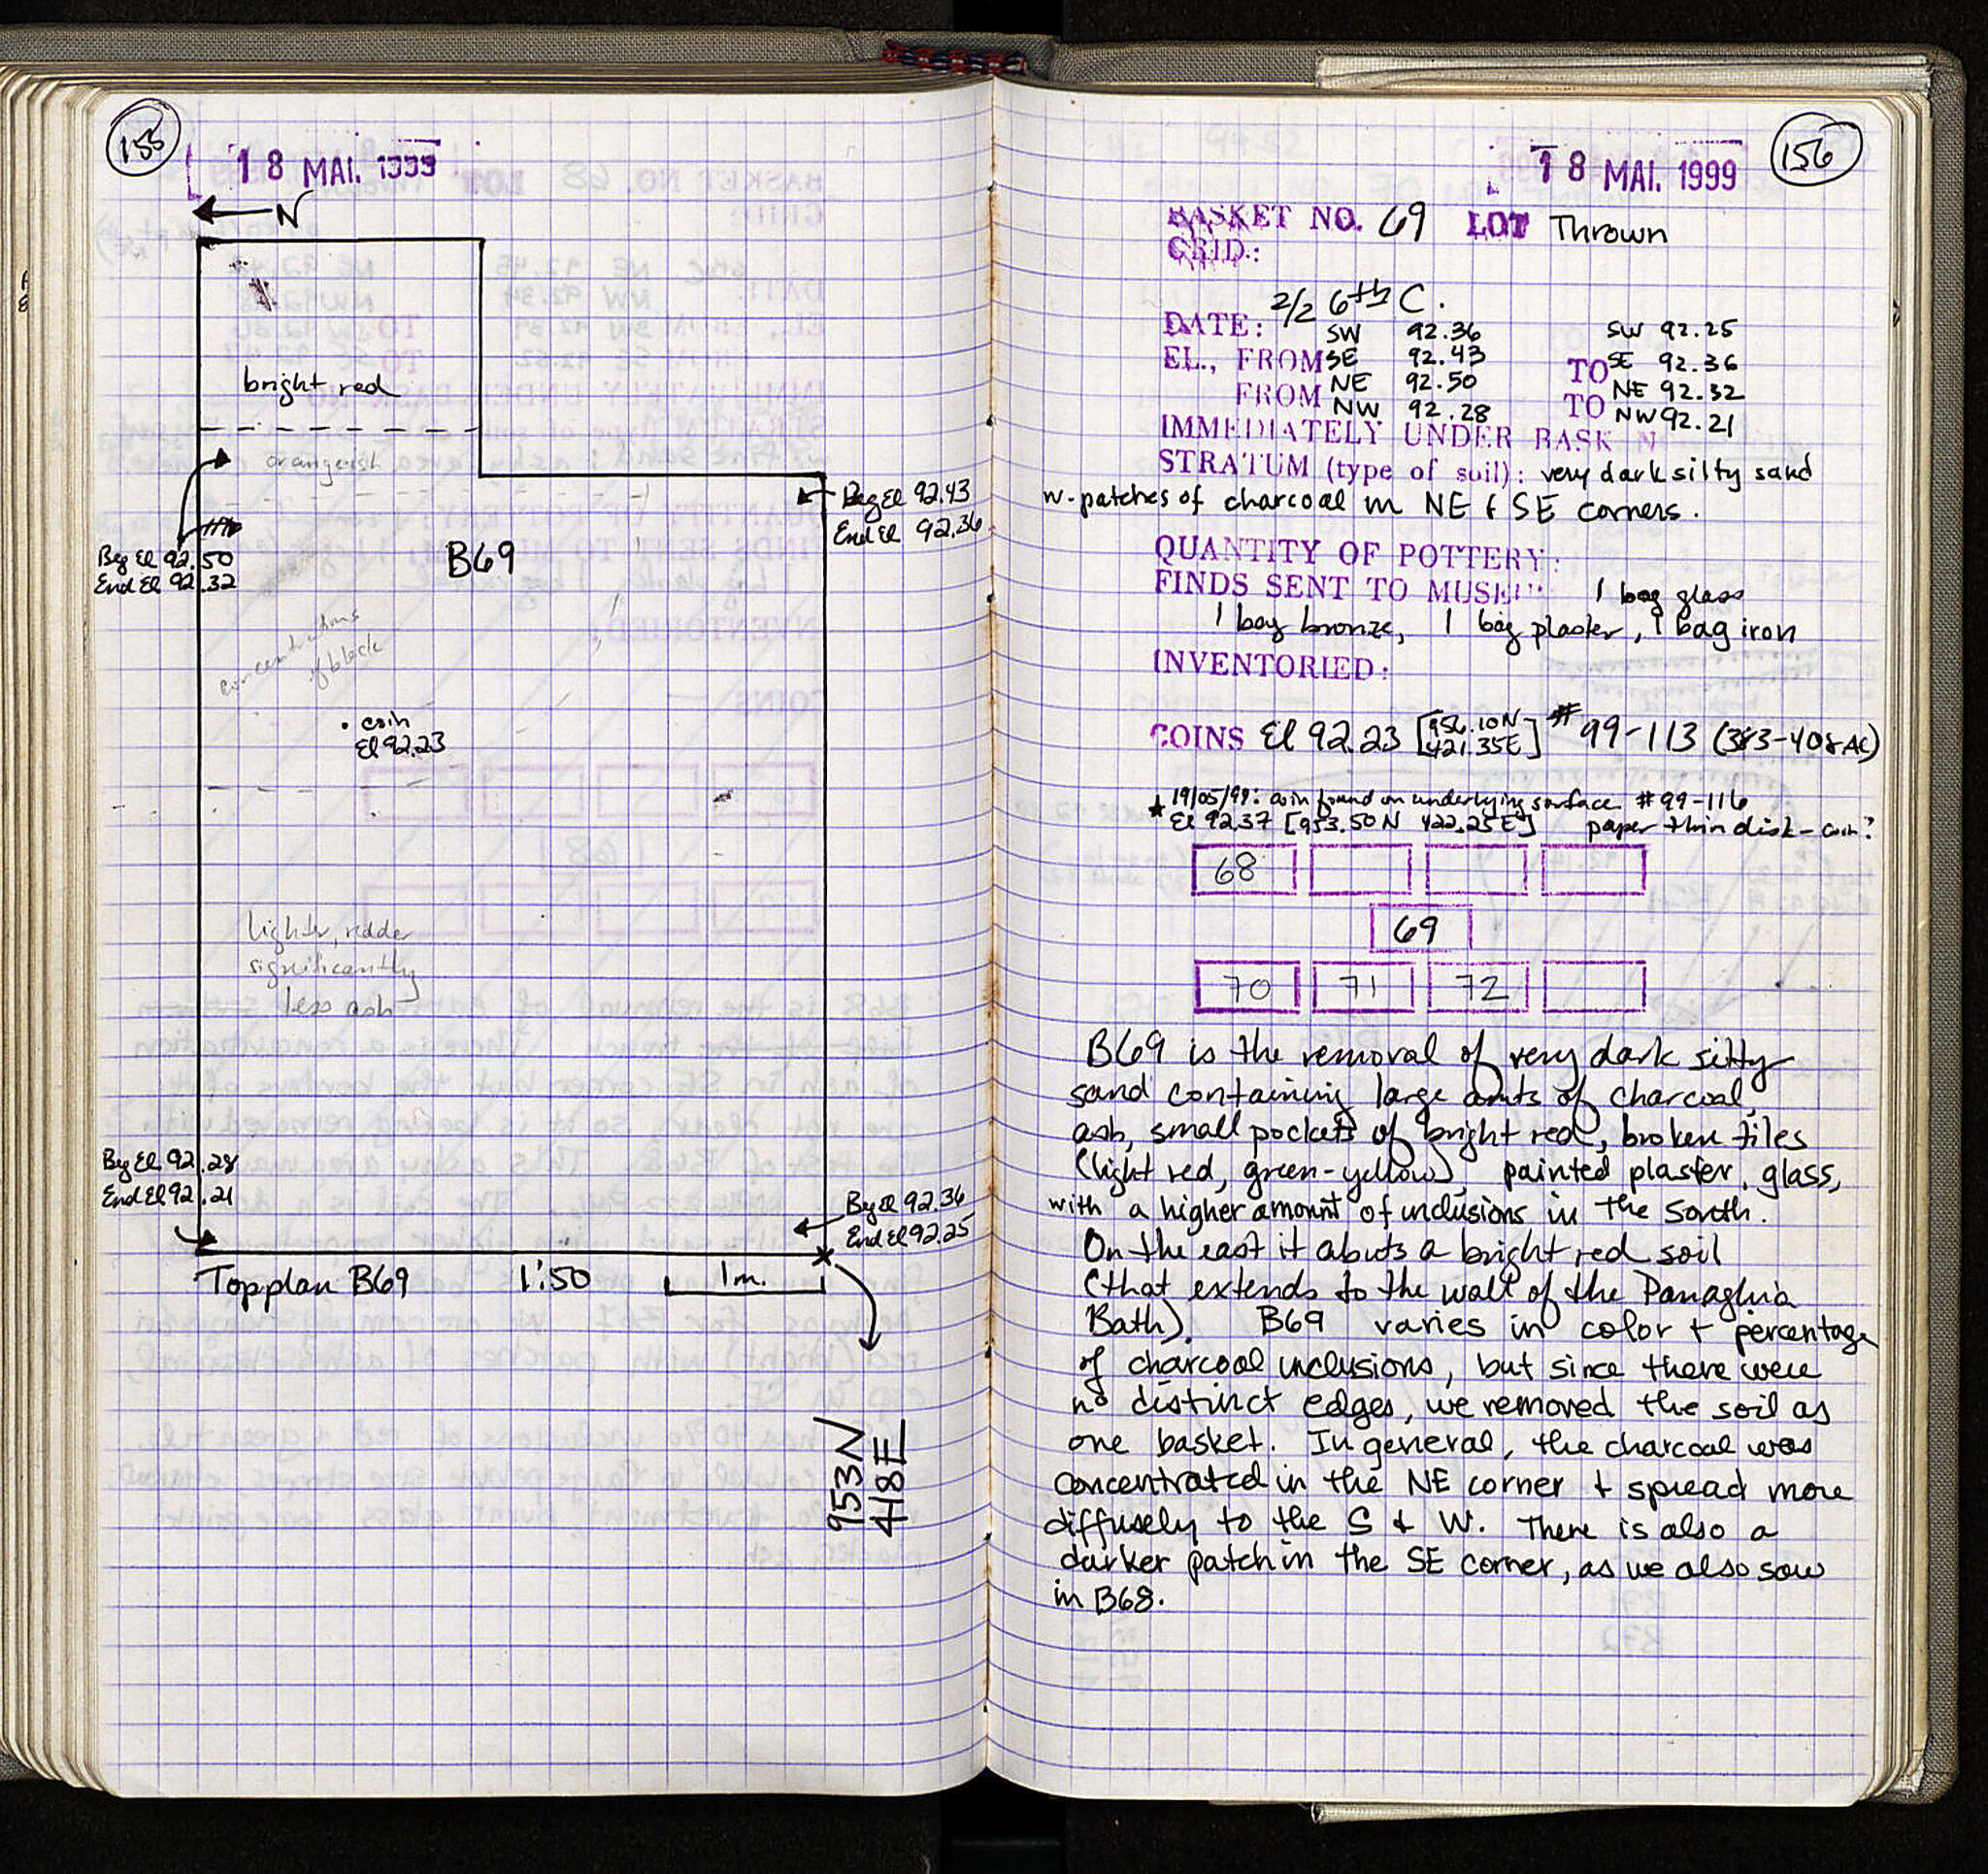 155
18 MAI. 1999
N
bright red
orangeish
Beg El 92.43
End El 92.36
Beg El 92.50
End El 92.32
B69
concentrations
of black
coin
El 92.23
lighter, redder
significantly
less ash
Beg El 92.28
End El 92.21
Beg El 92.36
End El 92.25
Top plan B69 1:50 1m.
953N
418E
156
18 MAI. 1999
BASKET NO. 69 LOT Thrown
GRID:
2/2 6th C.
DATE: SW 92.36 SW 92.25
EL., FROM SE 92.43 TO SE 92.36
FROM NE 92.50 TO NE 92.32
NW 92.28 NW 92.21
IMMEDIATELY UNDER BASK N
STRATUM (type of soil): very dark silty sand
w. patches of charcoal in NE & SE corners.
QUANTITY OF POTTERY:
FINDS SENT TO MUSEUM: 1 bag glass
1 bag bronze, 1 bag plaster, 1 bag iron
INVENTORIED:
COINS El 92.23 [956.10N 421.35E] # 99-113 (383-408 AC)
★ 19/05/99: coin found on underlying surface #99-116
El 92.37 [953.50N 422.25E] paper thin disk - coin?
68
69
70 71 72
B69 is the removal of very dark silty
sand containing large amts of charcoal,
ash, small pockets of bright red, broken tiles
(light red, green-yellow), painted plaster, glass,
with a higher amount of inclusions in the south.
On the east it abuts a bright red soil
(that extends to the wall of the Panaghia
Bath). B69 varies in color + percentage
of charcoal inclusions, but since there were
no distinct edges, we removed the soil as
one basket. In general, the charcoal was
concentrated in the NE corner + spread more
diffusely to the S & W. There is also a
darker patch in the SE corner, as we also saw
in B68.